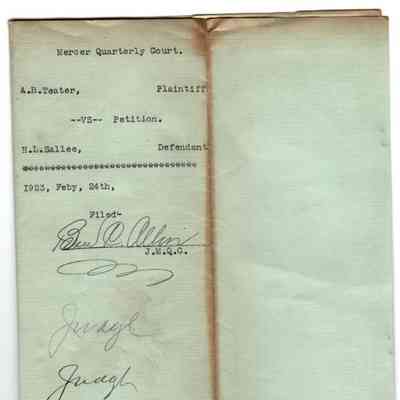 Mercer Quarterly Court.
A.B.Teater, Plaintiff
--VS-- Petition.
H.L.Sallee, Defendant
*******************************
1923, Feby, 24th,
Filed-
Ben C. Allin
J.M.Q.C.
Judgh
Judgh